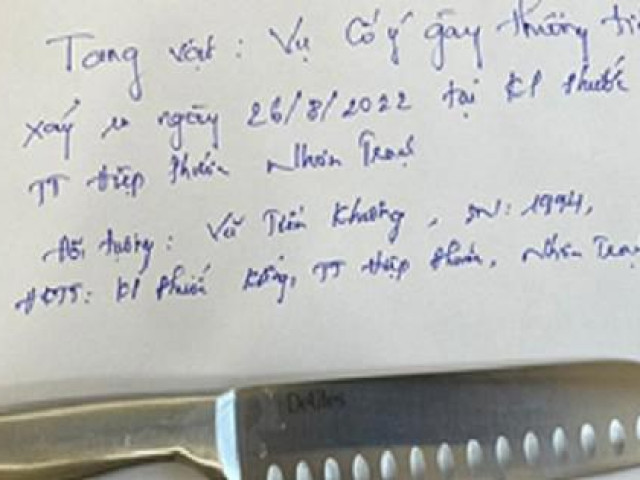 Tang vật: Vụ Cố ý gây thương tí
xảy ra ngày 26/8/2022 tại KP Phước
TT Hiệp Phước Nhơn Trạch
Đối tượng: Vũ Tiến Khương, SN: 1994,
HKTT: KP Phước Kiểng, TT Hiệp Phước, Nhơn Trạch